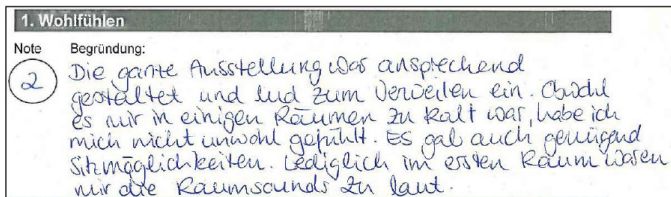 1. Wohlfühlen
Note Begründung:
2 Die ganze Ausstellung war ansprechend
gestaltet und lud zum Verweilen ein. Obwohl
es mir in einigen Räumen zu kalt war, habe ich
mich nicht unwohl gefühlt. Es gab auch genügend
Sitzmöglichkeiten. Lediglich im ersten Raum waren
mir die Raumsounds zu laut.